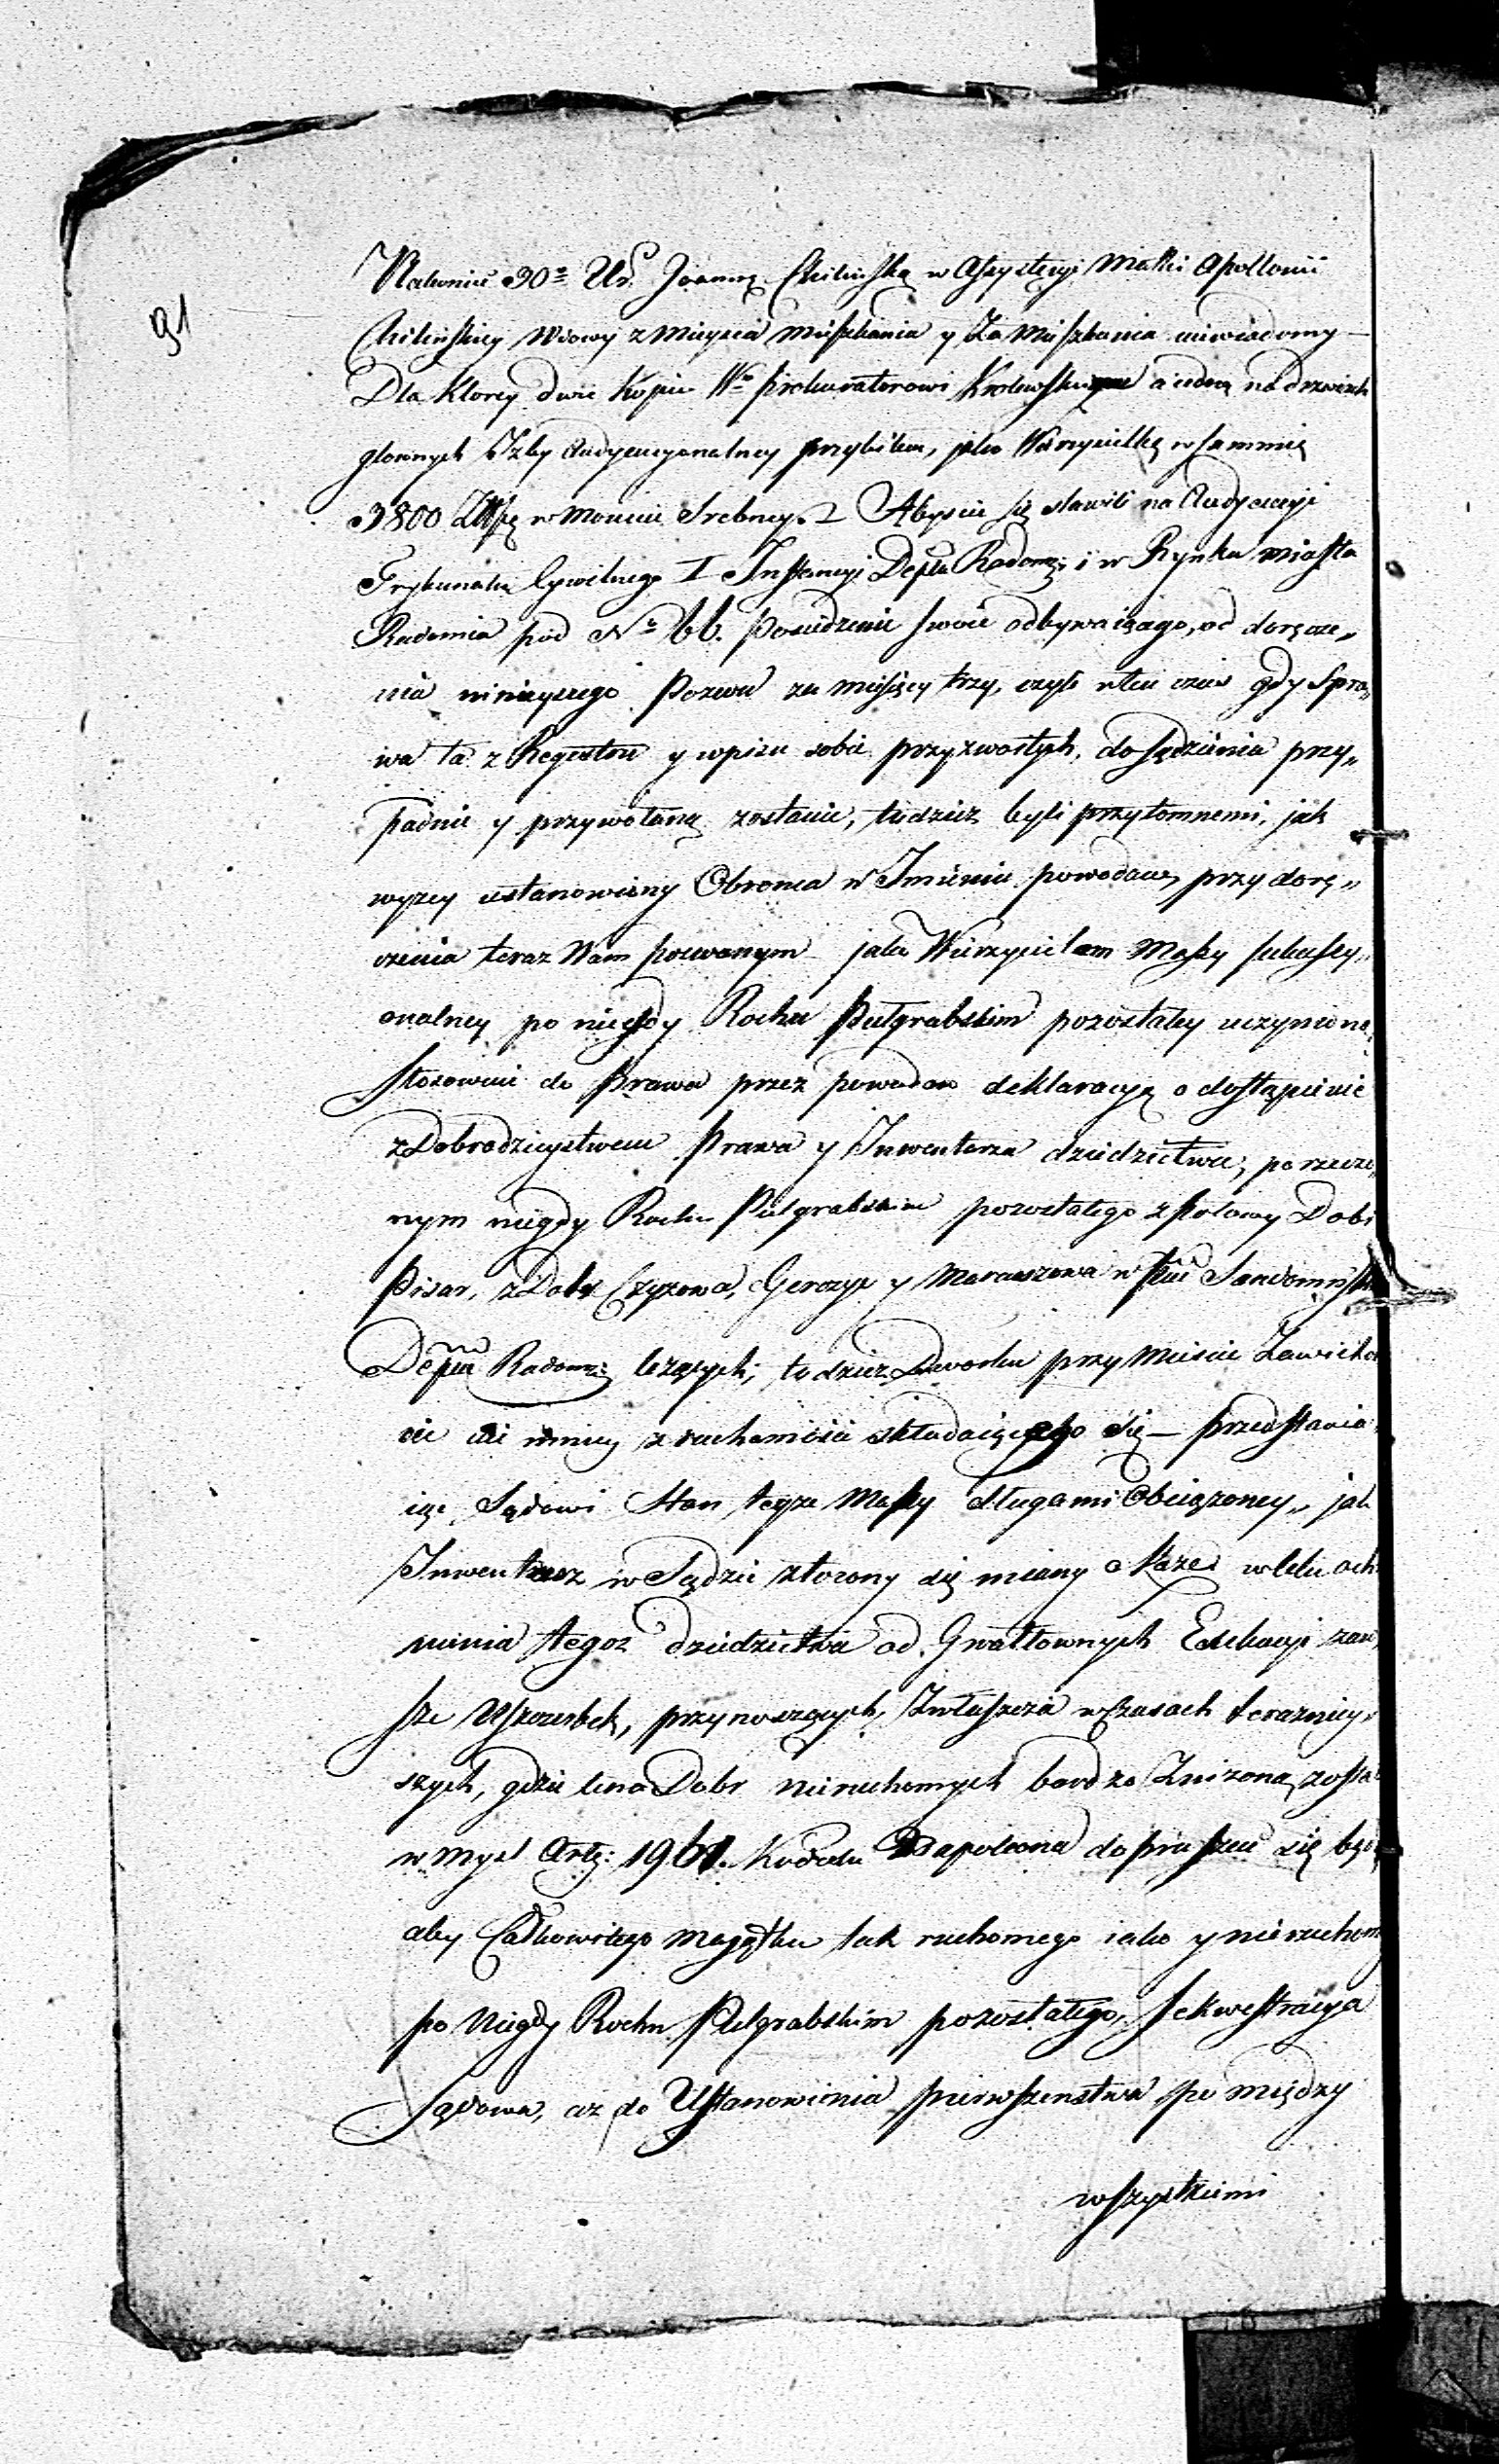 91
Nakoniec 30º Ur. Joannę Chilińską w Assystęcyi Matki Apollonii
Chilińskiey Wdowy z mieysca mieszkania y Zamieszkania niewiadomy —
Dla ktorey dwie kopie Wº Prokuratorowi Krolewskiemu a iedną na drzwiach
głownych Izby Audyencyonalney przybitem, jako Wierzycielkę w summie
3800 Złt w Monecie Srebney. Abyscie się stawili na Audyencyi
Trybunału Cywilnego I Instancyi Deptu Radomsgo i w Rynku miasta
Radomia pod Nº 66. Posiedzenie swoie odbywaiącego, od doręcze„
nia ninieyszego Pozwu za miesięcy trzy, czyli wten czas gdy Spra„
wa ta z Regestru y wpisu sobie przyzwoitych, do sądzenia przy„
padnie y przywołaną zostanie, tudzież byli przytomnemi, jak
wyzey ustanowiony Obronca w Imieniu powodow, przy dorę„
czenia teraz Wam pozwanym jako Wierzycielom Massy sukcessy„
onalney po niegdy Rochu Pułgrabskim pozostałey uczynione
stosownie do Prawa przez powodow deklaracyą o dostąpienie
z Dobrodzieystwem Prawa y Inwentarza dziedzictwa, po rzeczo„
nym niegdy Rochu Pułgrabskim pozostałego z połowy Dobr
Pisar, z Dobr Czyzowa, Gerczyc y Maruszowa w Ptcie Sandomirsk
Deptu Radomsm lezących, tudziez Dworku przy Miescie Zawicho
cie nie mniey z ruchomości składaiącego się — przedstawia
iąc Sądowi Stan teyze Massy długami Obciązoney, jak
Inwentarz w Sądzie złozony się miany okaze w celu och
nienia tegoz dziedzictwa od Gwałtownych Exekucyi zaw
sze Uszczerbek, przynoszących, Zwłaszcza w Czasach terazniey„
szych, gdzie cena Dobr nieruchomych bardzo Znizoną zosta
w mysl Arty: 1961. Kodexu Napoleona dopraszać się będą
aby Całkowitego maiątku tak ruchomego iako y nieruchom
po Niegdy Rochu Pułgrabskim pozostałego, sekwestracya
Sądowa, az do Ustanowienia pierwszenstwa po między
wszystkiemi